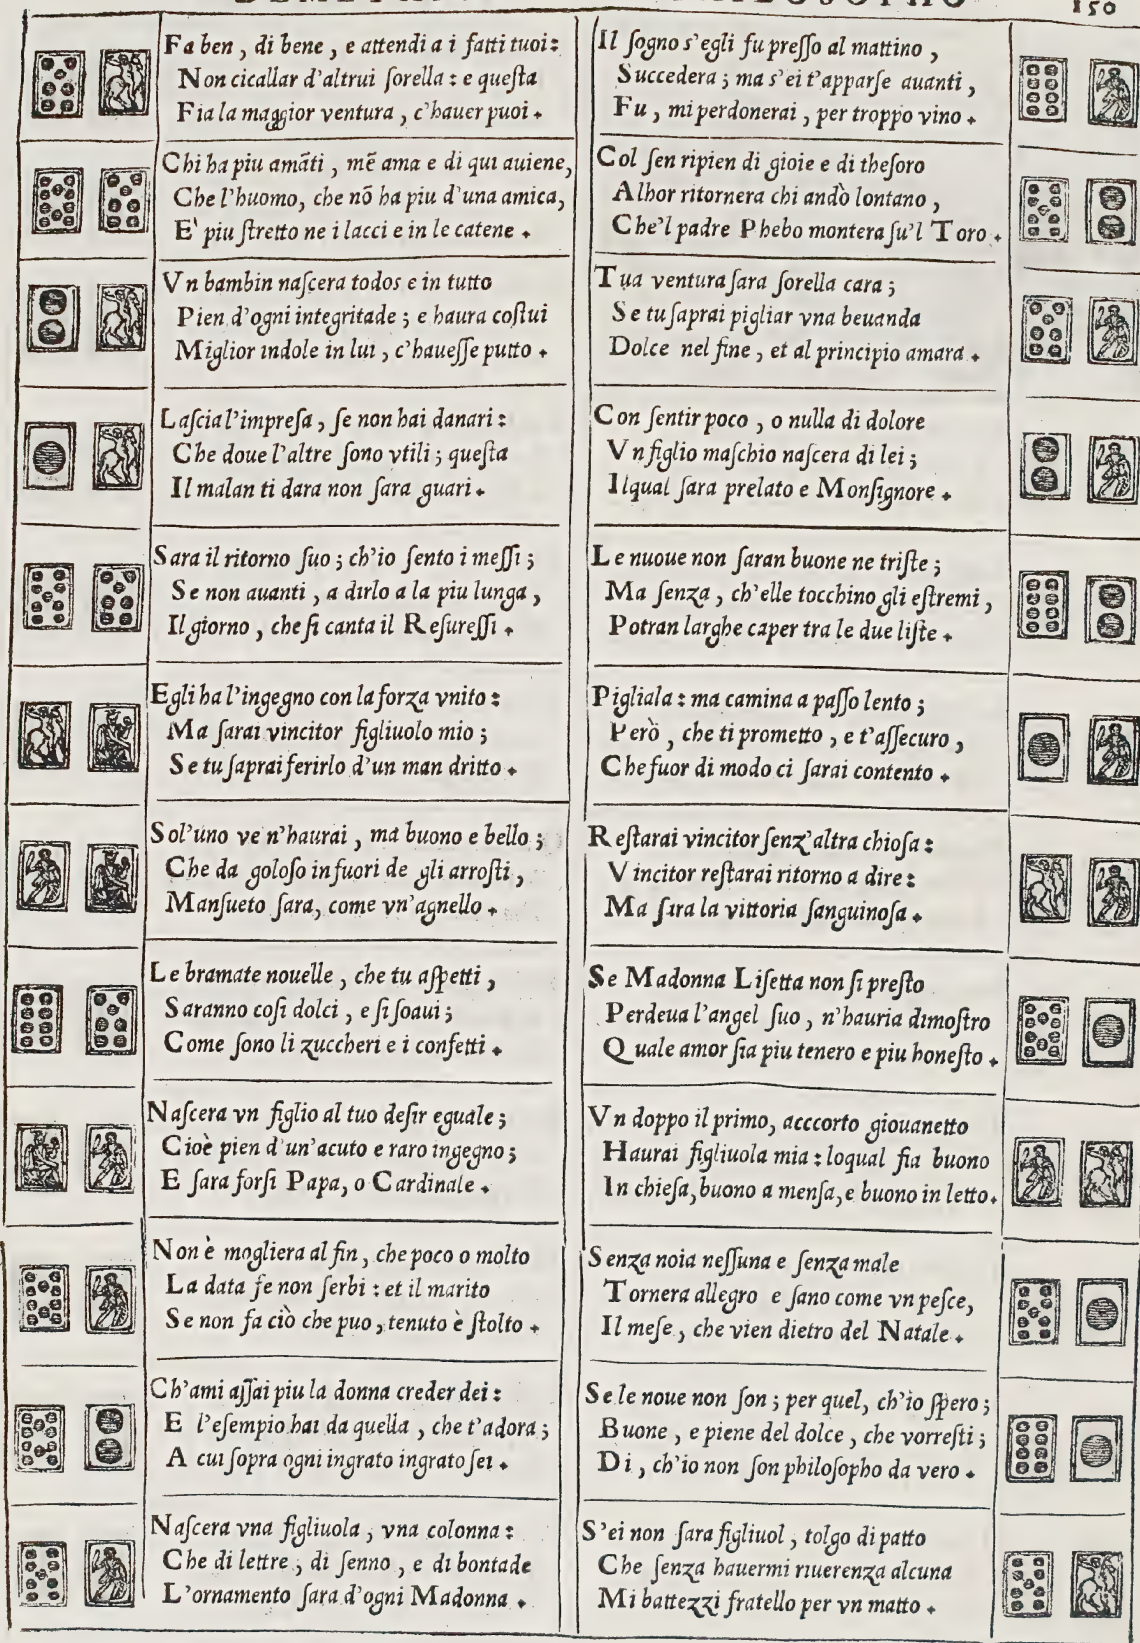 150
Fa ben, di bene, e attendi a i fatti tuoi:
Non cicallar d'altrui ſorella: e queſta
Fia la maggior ventura, c'hauer puoi.
Chi ha piu amāti, mē ama e di qui auiene,
Che l'huomo, che nō ha piu d'una amica,
E' piu ſtretto ne i lacci e in le catene.
Vn bambin naſcera todos e in tutto
Pien d'ogni integritade; e haura coſtui
Miglior indole in lui, c'haueſſe putto.
Laſcia l'impreſa, ſe non hai danari:
Che doue l'altre ſono vtili; queſta
Il malan ti dara non ſara guari.
Sara il ritorno ſuo; ch'io ſento i meſſi;
Se non auanti, a dirlo a la piu lunga,
Il giorno, che ſi canta il Reſureſſi.
Egli ha l'ingegno con la forza vnito:
Ma ſarai vincitor figliuolo mio;
Se tu ſaprai ferirlo d'un man dritto.
Sol'uno ve n'haurai, ma buono e bello;
Che da goloſo in fuori de gli arroſti,
Manſueto ſara, come vn'agnello.
Le bramate nouelle, che tu aſpetti,
Saranno coſi dolci, e ſi ſoaui;
Come ſono li zuccheri e i confetti.
Naſcera vn figlio al tuo deſir eguale;
Cioè pien d'un'acuto e raro ingegno;
E ſara forſi Papa, o Cardinale.
Non è mogliera al fin, che poco o molto
La data fe non ſerbi: et il marito
Se non fa ciò che puo, tenuto è ſtolto.
Ch'ami aſſai piu la donna creder dei:
E l'eſempio hai da quella, che t'adora;
A cui ſopra ogni ingrato ingrato ſei.
Naſcera vna figliuola, vna colonna:
Che di lettre, di ſenno, e di bontade
L'ornamento ſara d'ogni Madonna.
Il ſogno s'egli fu preſſo al mattino,
Succedera; ma s'ei t'apparſe auanti,
Fu, mi perdonerai, per troppo vino.
Col ſen ripien di gioie e di theſoro
Alhor ritornera chi andò lontano,
Che'l padre Phebo montera ſu'l Toro.
Tua ventura ſara ſorella cara;
Se tu ſaprai pigliar vna beuanda
Dolce nel fine, et al principio amara.
Con ſentir poco, o nulla di dolore
Vn figlio maſchio naſcera di lei;
Ilqual ſara prelato e Monſignore.
Le nuoue non ſaran buone ne triſte;
Ma ſenza, ch'elle tocchino gli eſtremi,
Potran larghe caper tra le due liſte.
Pigliala: ma camina a paſſo lento;
Però, che ti prometto, e t'aſſecuro,
Che fuor di modo ci ſarai contento.
Reſtarai vincitor ſenz'altra chioſa:
Vincitor reſtarai ritorno a dire:
Ma ſara la vittoria ſanguinoſa.
Se Madonna Liſetta non ſi preſto
Perdeua l'angel ſuo, n'hauria dimoſtro
Quale amor ſia piu tenero e piu honeſto.
Vn doppo il primo, acccorto giouanetto
Haurai figliuola mia: loqual fia buono
In chieſa, buono a menſa, e buono in letto.
Senza noia neſſuna e ſenza male
Tornera allegro e ſano come vn peſce,
Il meſe, che vien dietro del Natale.
Se le noue non ſon; per quel, ch'io ſpero;
Buone, e piene del dolce, che vorreſti;
Di, ch'io non ſon philoſopho da vero.
S'ei non ſara figliuol, tolgo di patto
Che ſenza hauermi riuerenza alcuna
Mi battezzi fratello per vn matto.